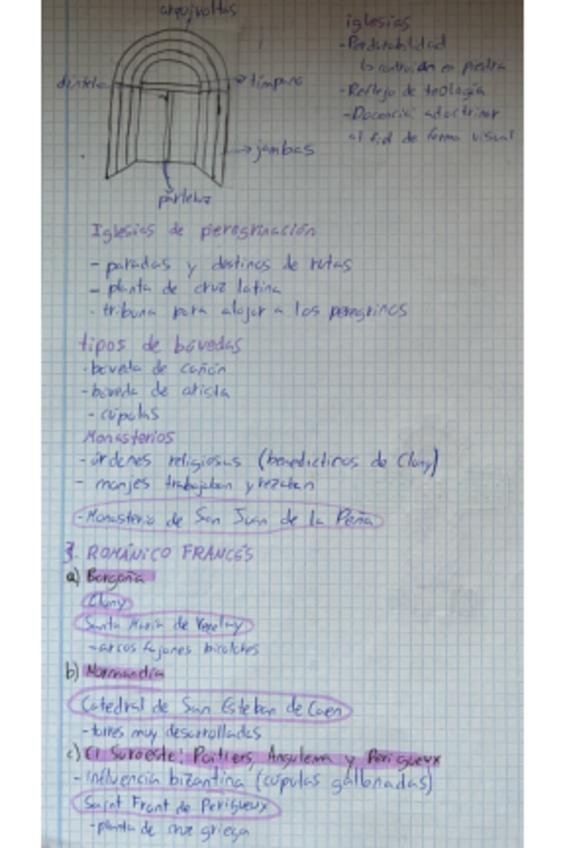 arquivoltas
dintel
tímpano
jambas
parteluz
iglesias
- Perdurabilidad
construida en piedra
- Reflejo de teología
- Docencia: adoctrinar
al fiel de forma visual
Iglesias de peregrinación
- paradas y destinos de rutas
- planta de cruz latina
- tribuna para alojar a los peregrinos
tipos de bóvedas
- bóveda de cañón
- bóveda de arista
- cúpulas
Monasterios
- órdenes religiosas (benedictinos de Cluny)
- monjes trabajaban y rezaban
- Monasterio de San Juan de la Peña
3. ROMÁNICO FRANCÉS
a) Borgoña
Cluny
Santa María de Vezelay
- arcos fajones bicolores
b) Normandía
Catedral de San Esteban de Caen
- torres muy desarrolladas
c) El Suroeste: Poitiers, Angulema y Périgueux
- influencia bizantina (cúpulas gallonadas)
Saint Front de Perigueux
- planta de cruz griega